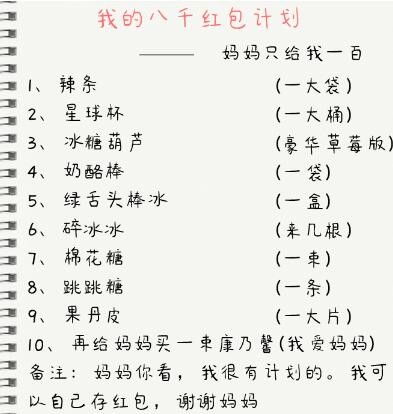 我的八千红包计划
—— 妈妈只给我一百
1、辣条 (一大袋)
2、星球杯 (一大桶)
3、冰糖葫芦 (豪华草莓版)
4、奶酪棒 (一袋)
5、绿舌头棒冰 (一盒)
6、碎冰冰 (来几根)
7、棉花糖 (一束)
8、跳跳糖 (一条)
9、果丹皮 (一大片)
10、再给妈妈买一束康乃馨(我爱妈妈)
备注：妈妈你看，我很有计划的。我可
以自己存红包，谢谢妈妈